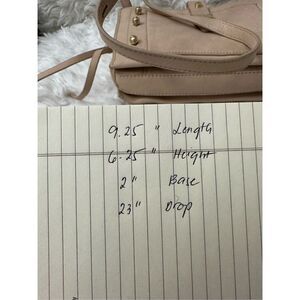 9.25 " Length
6.25 " Height
2" Base
23" Drop